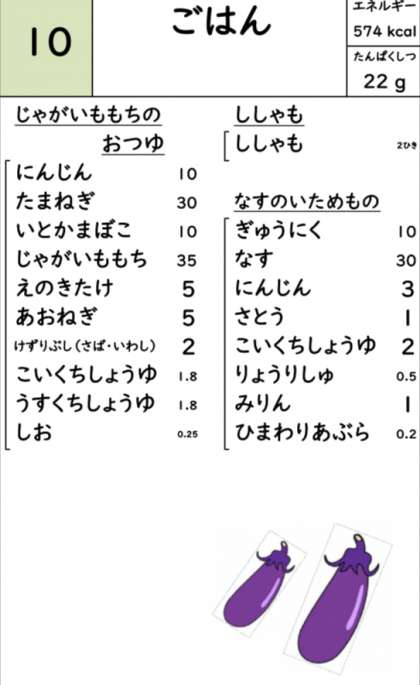 10
ごはん
エネルギー
574 kcal
たんぱくしつ
22 g
じゃがいももちの
おつゆ
にんじん 10
たまねぎ 30
いとかまぼこ 10
じゃがいももち 35
えのきたけ 5
あおねぎ 5
けずりぶし(さば・いわし) 2
こいくちしょうゆ 1.8
うすくちしょうゆ 1.8
しお 0.25
ししゃも
ししゃも 2ひき
なすのいためもの
ぎゅうにく 10
なす 30
にんじん 3
さとう 1
こいくちしょうゆ 2
りょうりしゅ 0.5
みりん 1
ひまわりあぶら 0.2